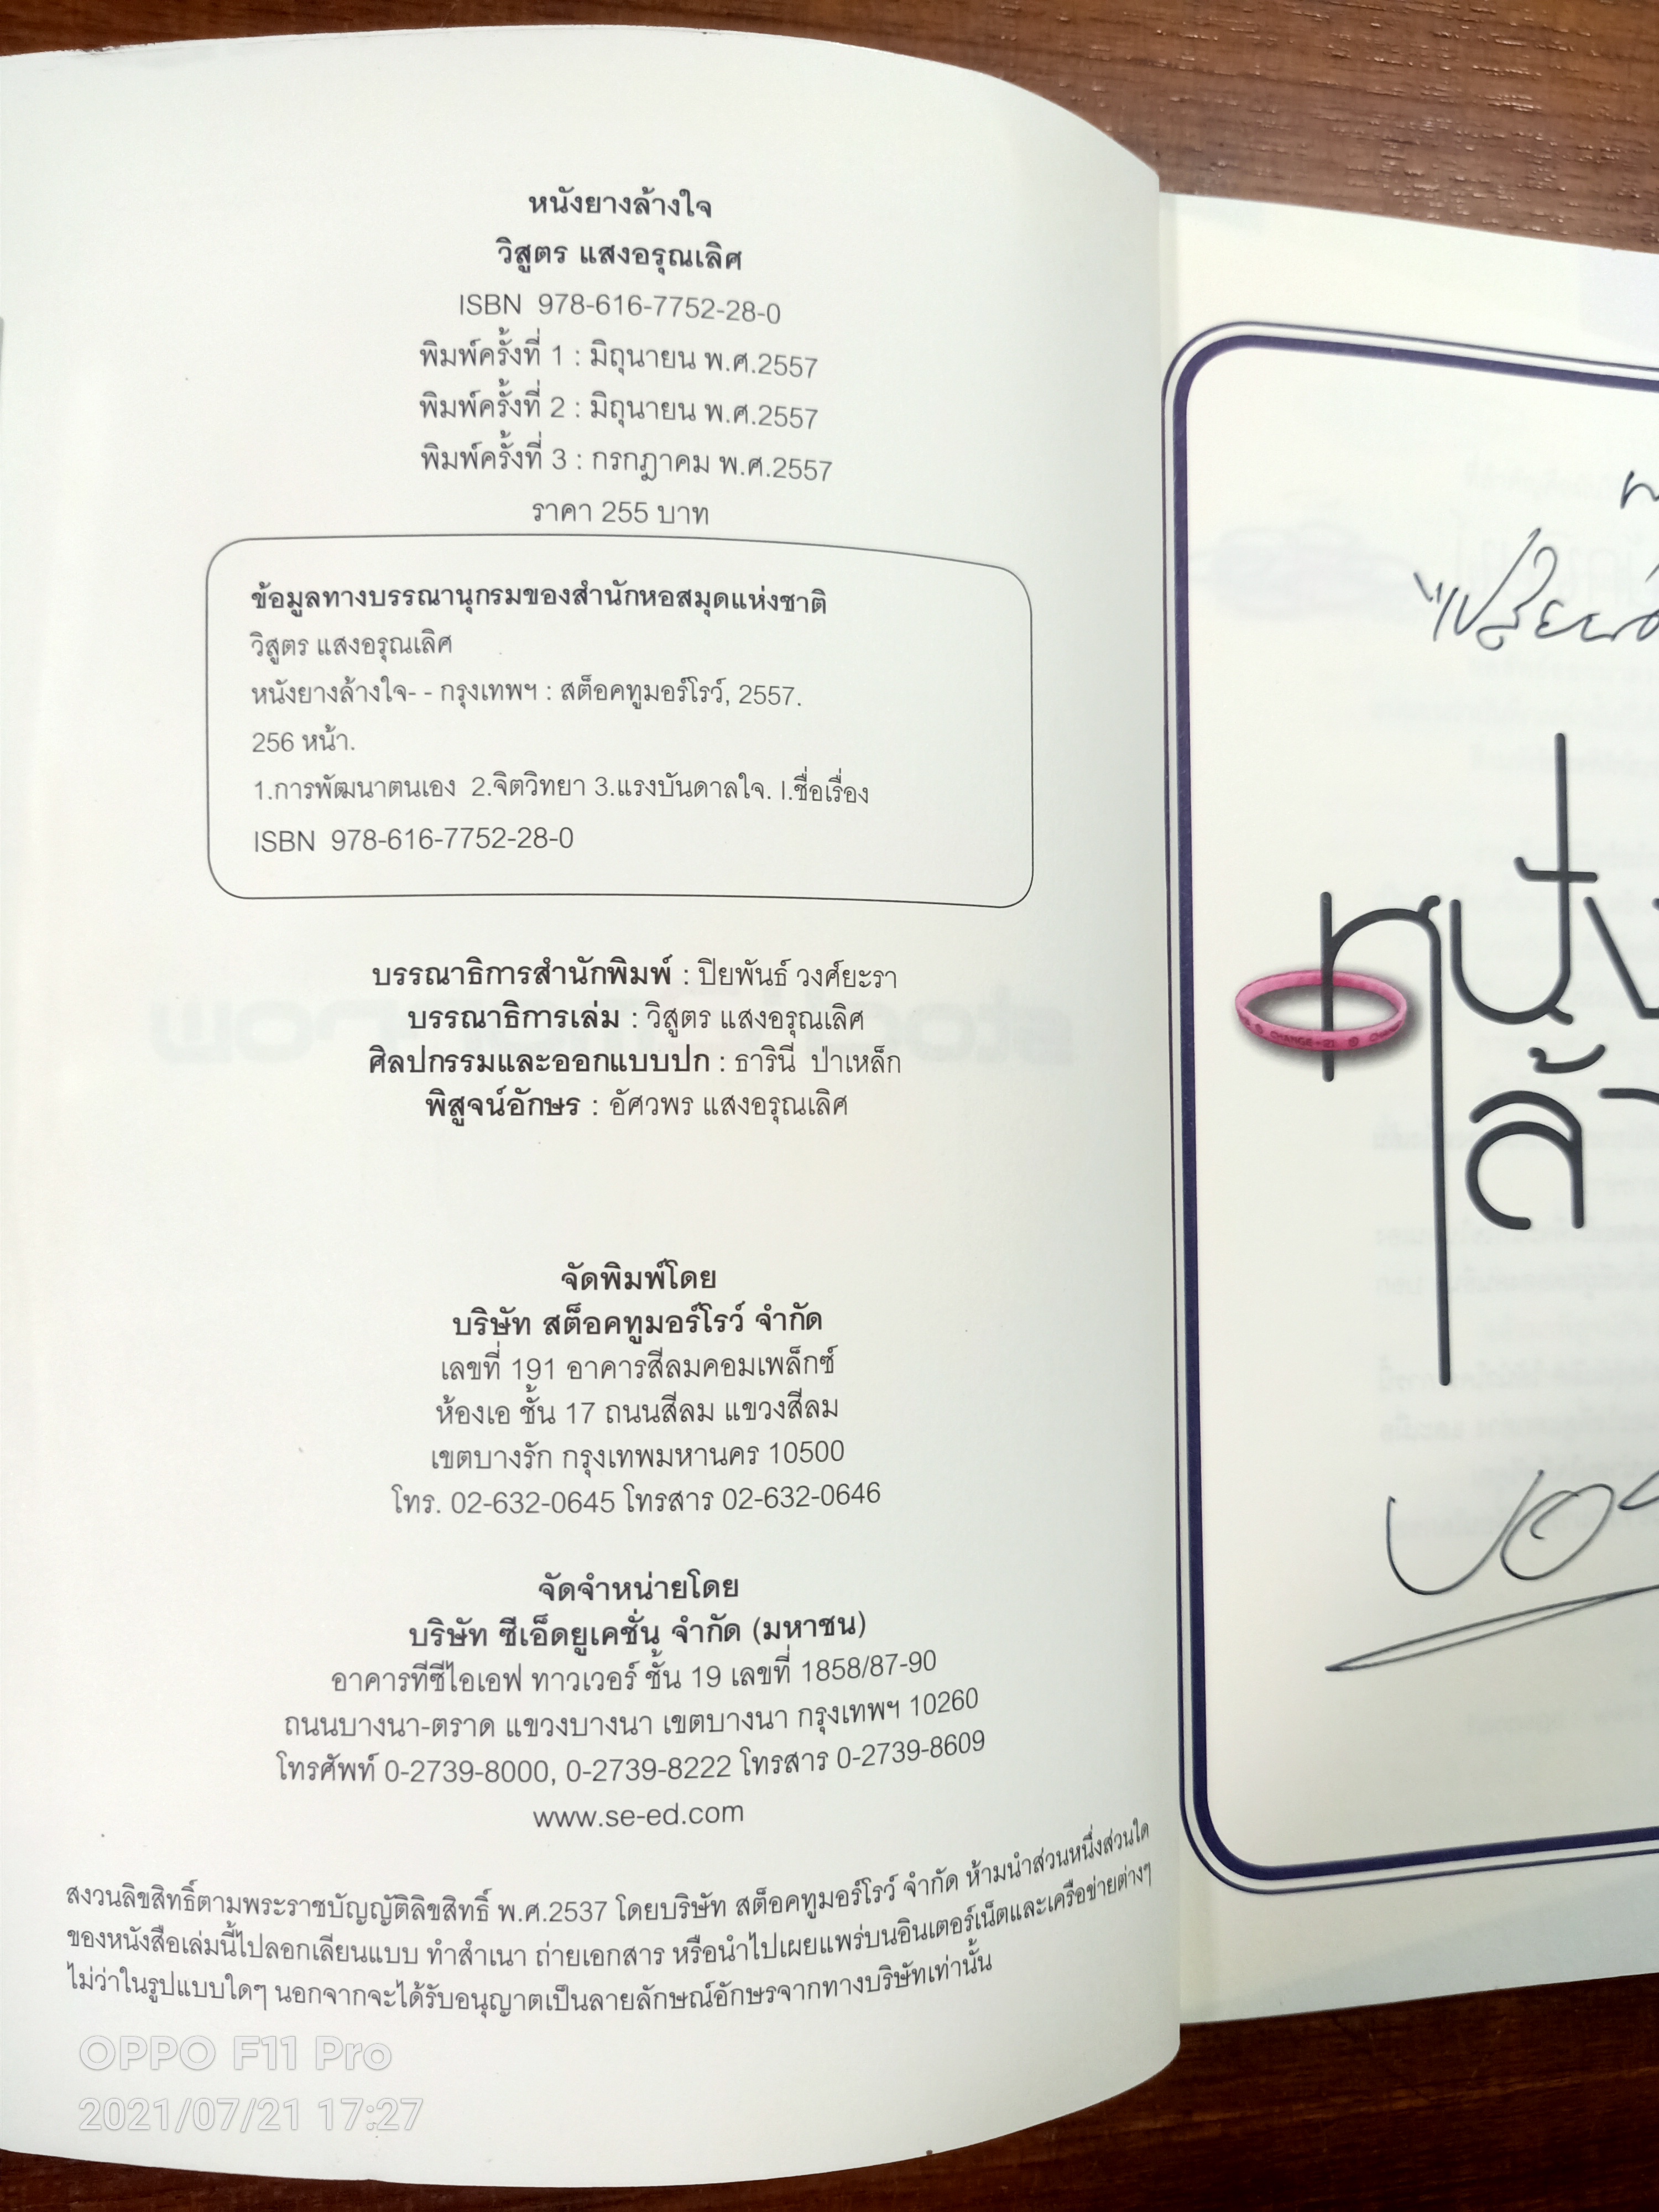 หนังยางล้างใจ
วิสูตร แสงอรุณเลิศ
ISBN 978-616-7752-28-0
พิมพ์ครั้งที่ 1 : มิถุนายน พ.ศ.2557
พิมพ์ครั้งที่ 2 : มิถุนายน พ.ศ.2557
พิมพ์ครั้งที่ 3 : กรกฎาคม พ.ศ.2557
ราคา 255 บาท
ข้อมูลทางบรรณานุกรมของสำนักหอสมุดแห่งชาติ
วิสูตร แสงอรุณเลิศ
หนังยางล้างใจ- - กรุงเทพฯ : สต็อคทูมอร์โรว์, 2557.
256 หน้า.
1.การพัฒนาตนเอง 2.จิตวิทยา 3.แรงบันดาลใจ. I.ชื่อเรื่อง
ISBN 978-616-7752-28-0
บรรณาธิการสำนักพิมพ์ : ปิยพันธ์ วงศ์ยะรา
บรรณาธิการเล่ม : วิสูตร แสงอรุณเลิศ
ศิลปกรรมและออกแบบปก : ธารินี ป่าเหล็ก
พิสูจน์อักษร : อัศวพร แสงอรุณเลิศ
จัดพิมพ์โดย
บริษัท สต็อคทูมอร์โรว์ จำกัด
เลขที่ 191 อาคารสีลมคอมเพล็กซ์
ห้องเอ ชั้น 17 ถนนสีลม แขวงสีลม
เขตบางรัก กรุงเทพมหานคร 10500
โทร. 02-632-0645 โทรสาร 02-632-0646
จัดจำหน่ายโดย
บริษัท ซีเอ็ดยูเคชั่น จำกัด (มหาชน)
อาคารทีซีไอเอฟ ทาวเวอร์ ชั้น 19 เลขที่ 1858/87-90
ถนนบางนา-ตราด แขวงบางนา เขตบางนา กรุงเทพฯ 10260
โทรศัพท์ 0-2739-8000, 0-2739-8222 โทรสาร 0-2739-8609
www.se-ed.com
สงวนลิขสิทธิ์ตามพระราชบัญญัติลิขสิทธิ์ พ.ศ.2537 โดยบริษัท สต็อคทูมอร์โรว์ จำกัด ห้ามนำส่วนหนึ่งส่วนใด
ของหนังสือเล่มนี้ไปลอกเลียนแบบ ทำสำเนา ถ่ายเอกสาร หรือนำไปเผยแพร่บนอินเตอร์เน็ตและเครือข่ายต่างๆ
ไม่ว่าในรูปแบบใดๆ นอกจากจะได้รับอนุญาตเป็นลายลักษณ์อักษรจากทางบริษัทเท่านั้น
OPPO F11 Pro
2021/07/21 17:27
หนัง
ล้า